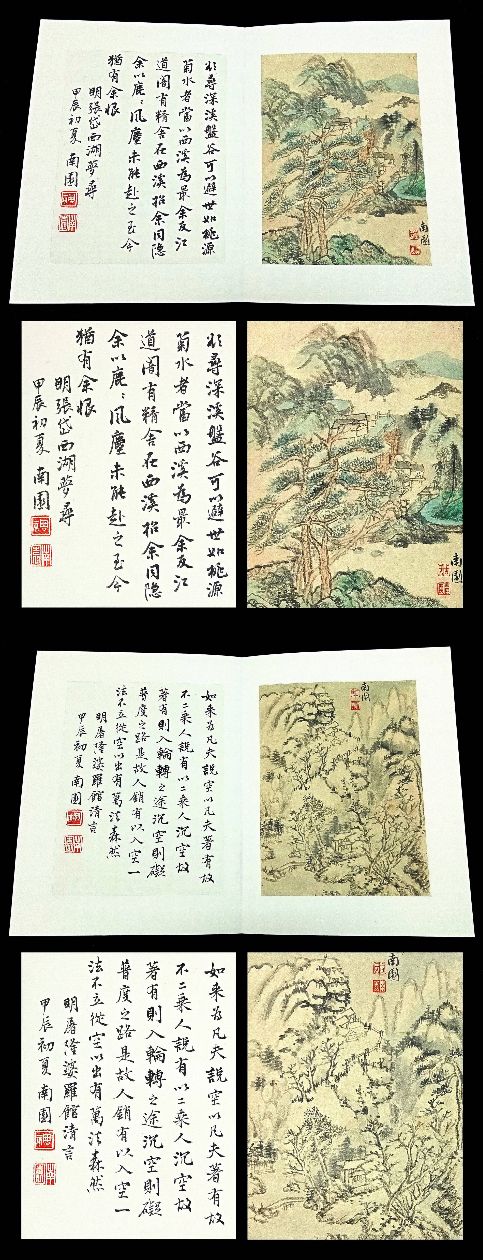 欲尋深溪盤谷可以避世如桃源
菊水者當以西溪為最余友江
道闇有精舍在西溪招余同隐
余以鹿〻風塵未能赴之至今
猶有余恨
明張岱西湖夢尋
甲辰初夏 南園
南園
欲尋深溪盤谷可以避世如桃源
菊水者當以西溪為最余友江
道闇有精舍在西溪招余同隐
余以鹿〻風塵未能赴之至今
猶有余恨
明張岱西湖夢尋
甲辰初夏 南園
南園
如来為凡夫說空以凡夫著有故
為二乘人說有以二乘人沉空故
著有則入輪轉之途沉空則礙
普度之路是故人銷有以入空一
法不立從空以出有萬法森然
明屠隆娑羅館清言
甲辰初夏 南園
南園
如来為凡夫說空以凡夫著有故
為二乘人說有以二乘人沉空故
著有則入輪轉之途沉空則礙
普度之路是故人銷有以入空一
法不立從空以出有萬法森然
明屠隆娑羅館清言
甲辰初夏 南園
南園